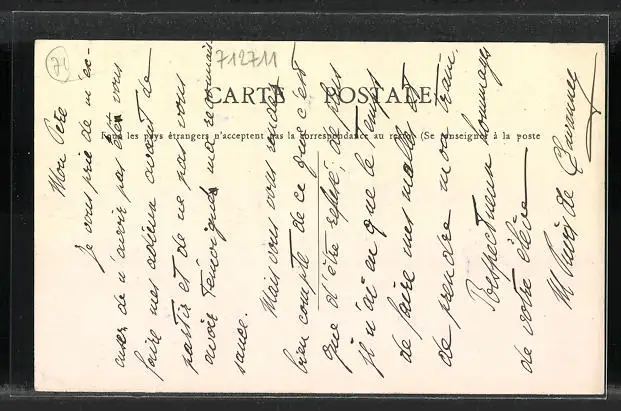 71
712711
CARTE POSTALE
Tous les pays étrangers n'acceptent pas la correspondance au recto (Se renseigner à la poste
Mon Père
Je vous prie de m'ex-
cuser de n'avoir pas été vous
faire mes adieux avant de
partir et de ne pas vous
avoir témoigné ma reconnais
sance.
Mais vous vous rendez
bien compte de ce que c'est
que d'être reçue; de plus
je n'ai eu que le temps
de faire mes malles et
de prendre mon train.
Respectueux hommages
de votre élève
M de